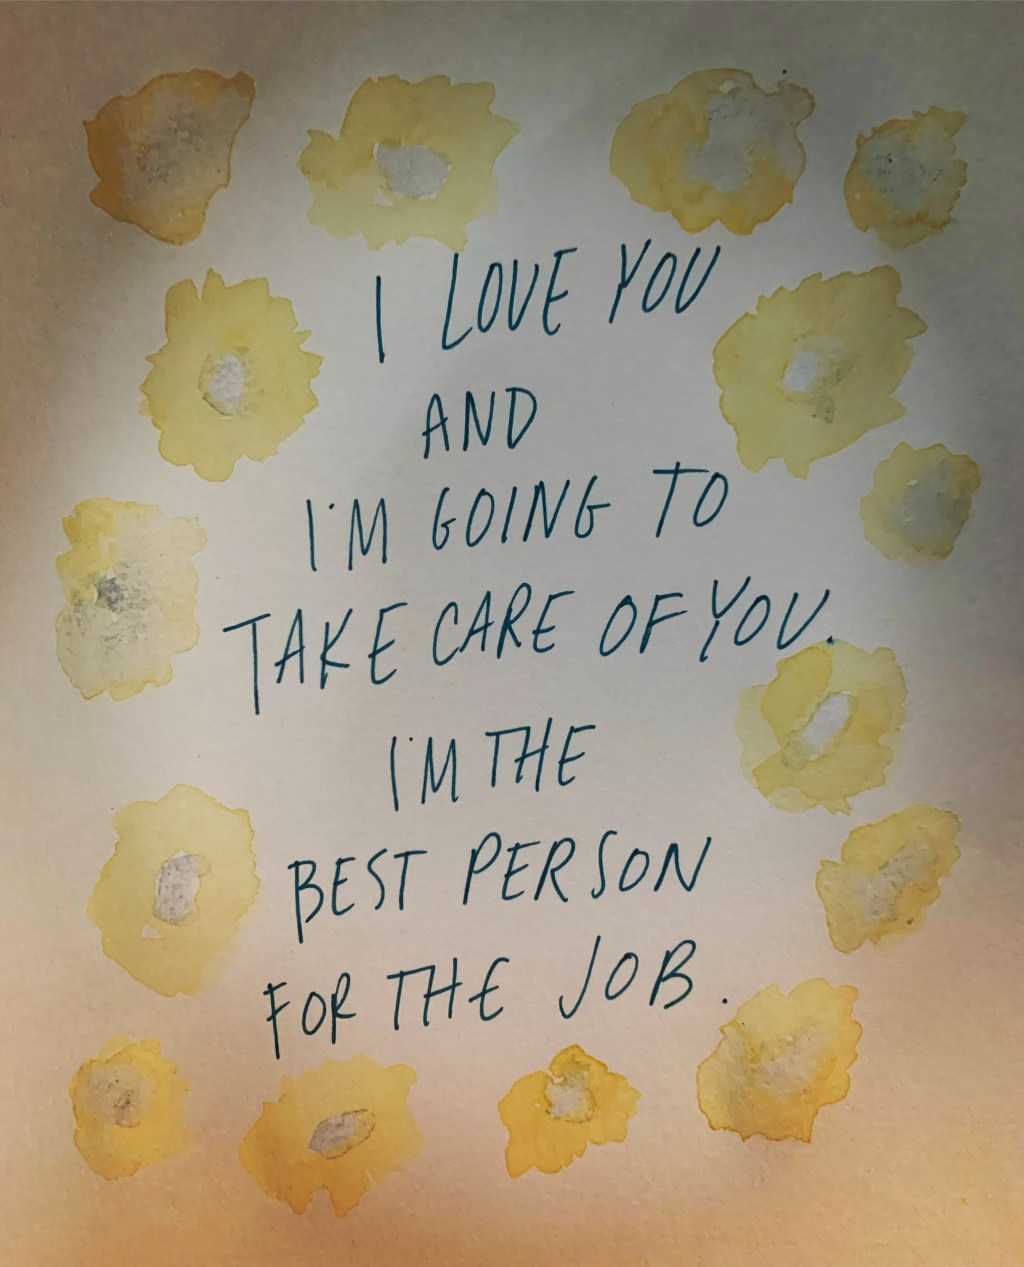 I LOVE YOU
AND
I'M GOING TO
TAKE CARE OF YOU.
I'M THE
BEST PERSON
FOR THE JOB.